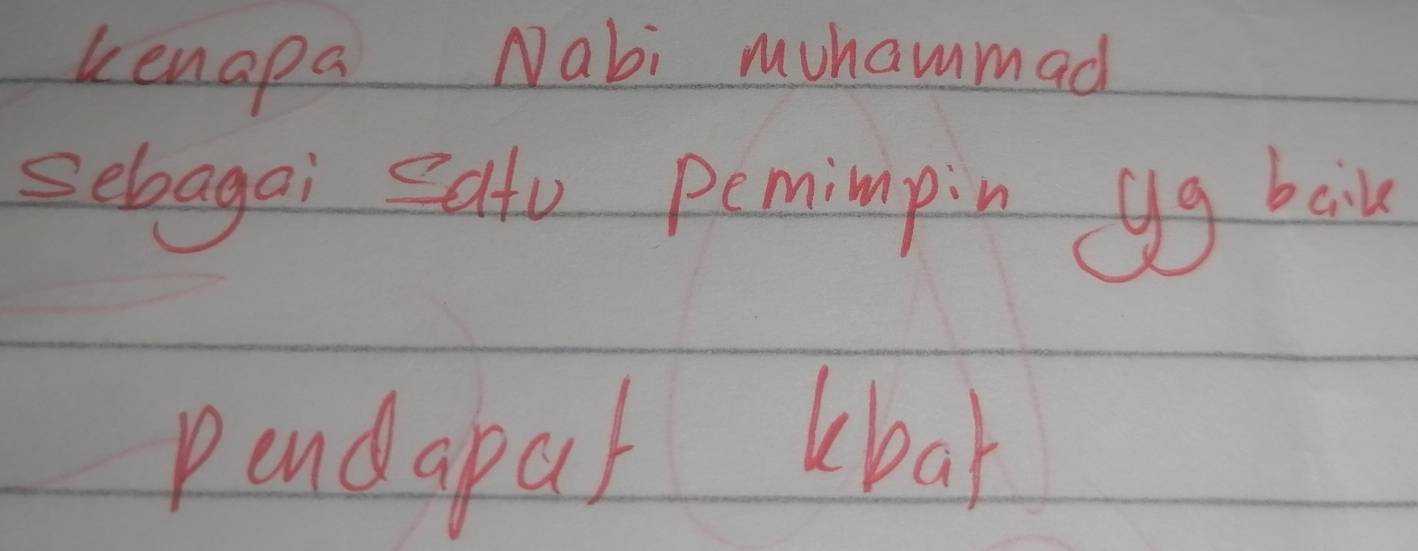 kenapa Nabi muhammad
sebagai satu pemimpin yg baik
pendapat kbat